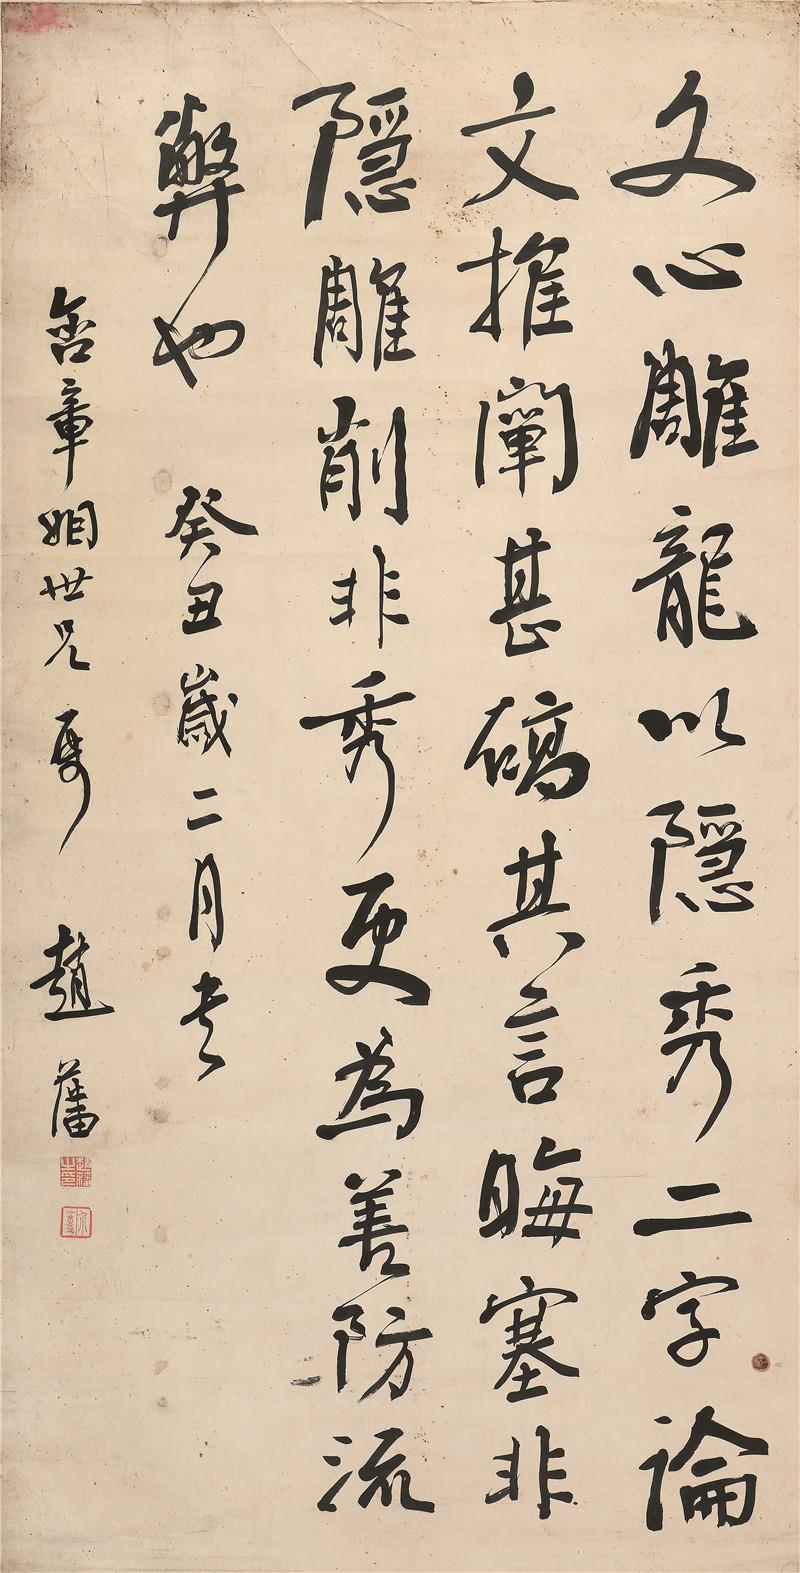 文心雕龍以隱秀二字論
文推闡甚确其言晦塞非
隱雕削非秀更為善防流
弊也 癸丑歲二月書
含章姻世兄 屬 趙藩
趙藩之印